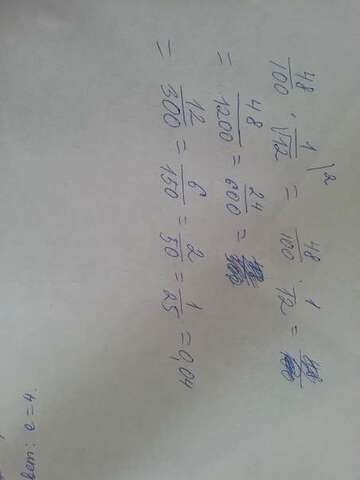 48/100 · (1/√12)² = 48/100 · 1/12 =
= 48/1200 = 24/600 =
= 12/300 = 6/150 = 2/50 = 1/25 = 0,04
вет: a = 4.